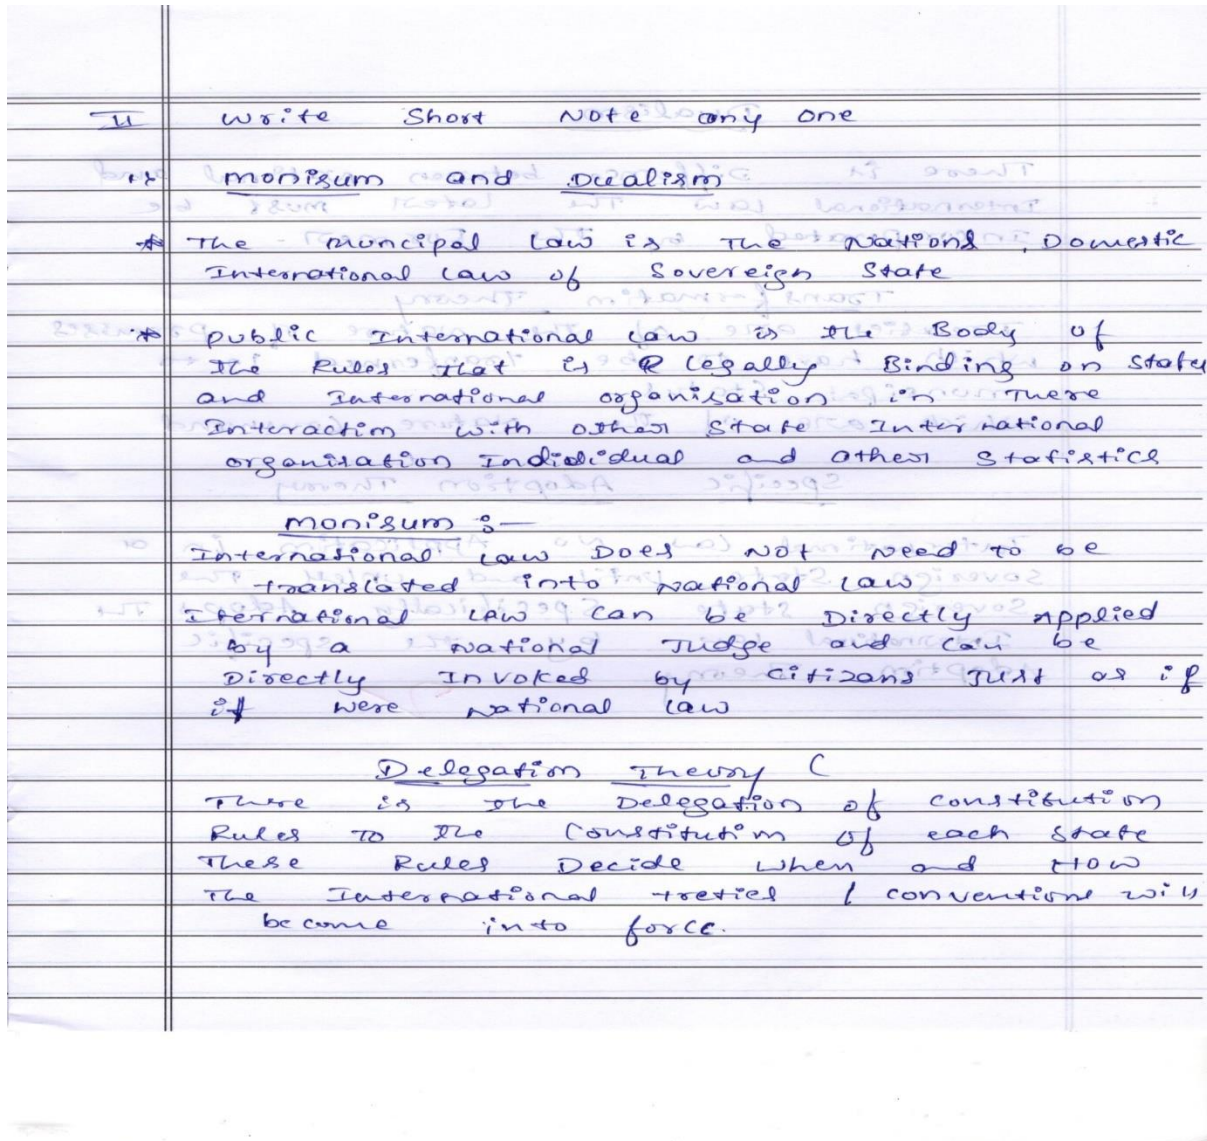 II Write Short Note any one
Monisum and Dualism
* The muncipal Law is The Nations, Domestic
International Law of Sovereign State
* public International Law is the Body of
The Rules that is legally Binding on States
and International organisation in There
Interaction with other State International
organisation Indidividual and other Statistics
Monisum :-
International Law Does Not Need to be
translated into National Law
Iternational Law can be Directly Applied
by a National Judge and can be
Directly Invoked by Citizans Just as if
it were National Law
Delegation Theory (
There is the Delegation of constitution
Rules To the Constitution of each State
These Rules Decide when and How
The International treties / conventions will
become into force.